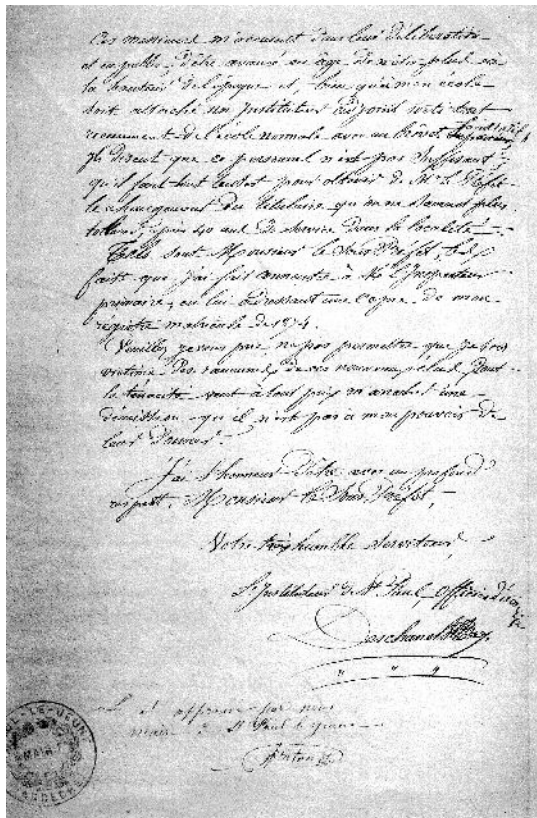 Ces messieurs m'accusent dans leur délibération
et en public d'être avancé en âge de n'être plus à
la hauteur de l'époque et, bien qu'à mon école
soit attaché un Instituteur adjoint sorti tout
récemment de l'école normale avec un brevet facultatif
Ils disent que ce personnel n'est pas suffisant,
qu'il faut tout tenter pour obtenir de Mr. le Préfet
le changement du titulaire, qu'on ne saurait plus
tolérer, après 40 ans de service dans la localité.
Tels sont Monsieur le Sous-Préfet, les
faits que j'ai fait connaître à M. l'Inspecteur
primaire, en lui adressant une copie de mon
registre matricule de 1874.
Veuillez je vous prie, ne pas permettre que je sois
victime des rancunes de ces nouveaux élus dont
la ténacité veut à tout prix m'arracher une
démission qu'il n'est pas à mon pouvoir de
leur donner.
J'ai l'honneur d'être avec un profond
respect, Monsieur le Sous-Préfet,
Votre très humble serviteur,
L'Instituteur de St Paul, Officier d'
Deschanels
Lu et approuvé par nous
maire à St Paul le jeune
PAUL-LE-JEUNE
MAIRIE
ARDECHE